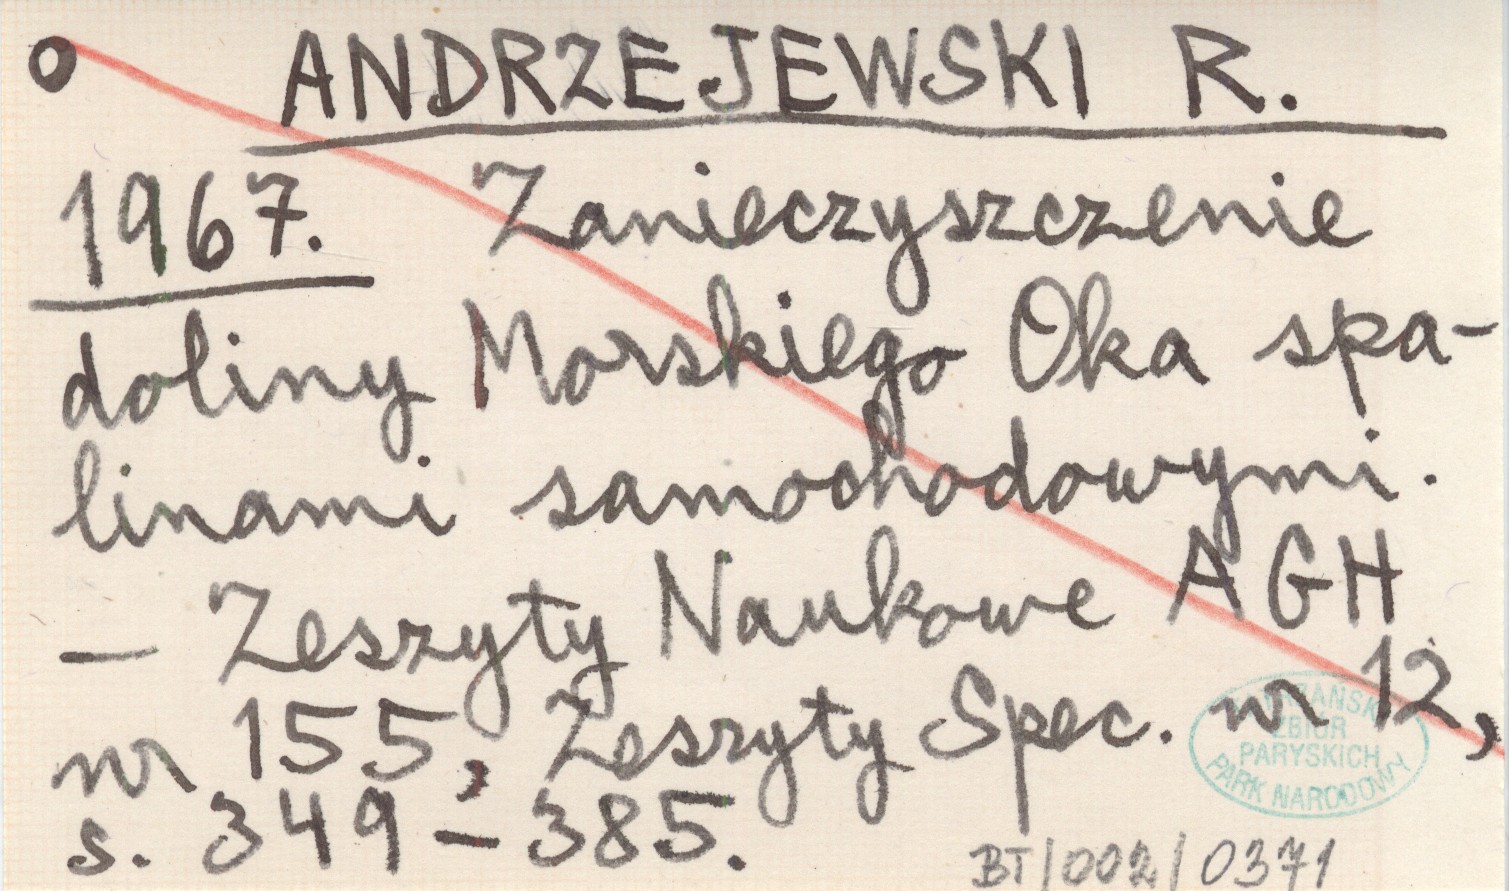 o ANDRZEJEWSKI R.
1967. Zanieczyszczenie
doliny Morskiego Oka spa-
linami samochodowymi.
— Zeszyty Naukowe AGH
nr 155, Zeszyty Spec. nr 12,
s. 349-385.
TATRZAŃSKI
ZBIÓR
PARYSKICH
PARK NARODOWY
BT/002/0371